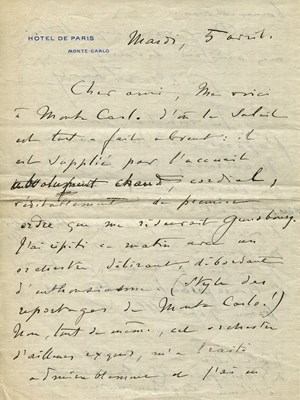 HÔTEL DE PARIS
MONTE-CARLO
Mardi, 5 avril.
Cher ami, Me voici
à Monte Carlo. D'où le soleil
est tout à fait absent : il
est suppléé par l'accueil
absolument chaud, cordial,
de première
ordre que me Gunsbourg.
J'ai répété ce matin avec un
orchestre délirant, débordant
d'enthousiasme. (Style des
reportages de Monte Carlo!)
Non, tout de même, cet orchestre
d'ailleurs exquis, m'a traité
admirablement et j'ai eu